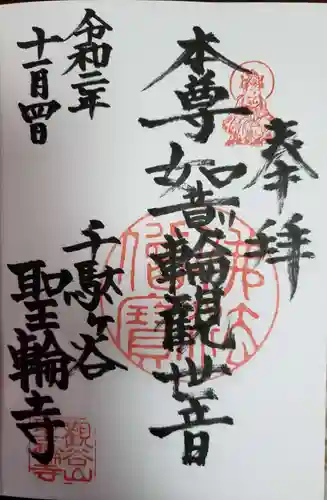 奉拝
本尊如意輪観世音
千駄ヶ谷
聖輪寺
令和二年
十一月四日
佛法僧寳
観谷山
聖輪寺